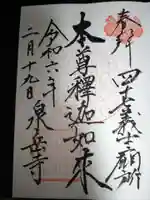 奉拝 四十七義士願所
本尊釋迦如来
令和六年
二月十九日 泉岳寺